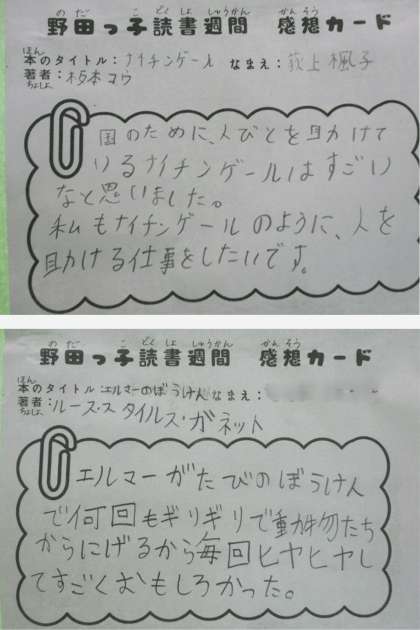 のだ こどくしょしゅうかん かんそう
野田っ子読書週間 感想カード
ほん
本のタイトル:ナイチンゲール なまえ:荻上楓子
著者:杉本コウ
ちょしゃ
国のために、人びとを助けて
いるナイチンゲールはすごい
なと思いました。
私もナイチンゲールのように、人を
助ける仕事をしたいです。
のだ こどくしょしゅうかん かんそう
野田っ子読書週間 感想カード
ほん
本のタイトル:エルマーのぼうけん なまえ:
著者:ルース・スタイルス・ガネット
ちょしゃ
エルマーがたびのぼうけん
で何回もギリギリで動物たち
からにげるから毎回ヒヤヒヤし
てすごくおもしろかった。